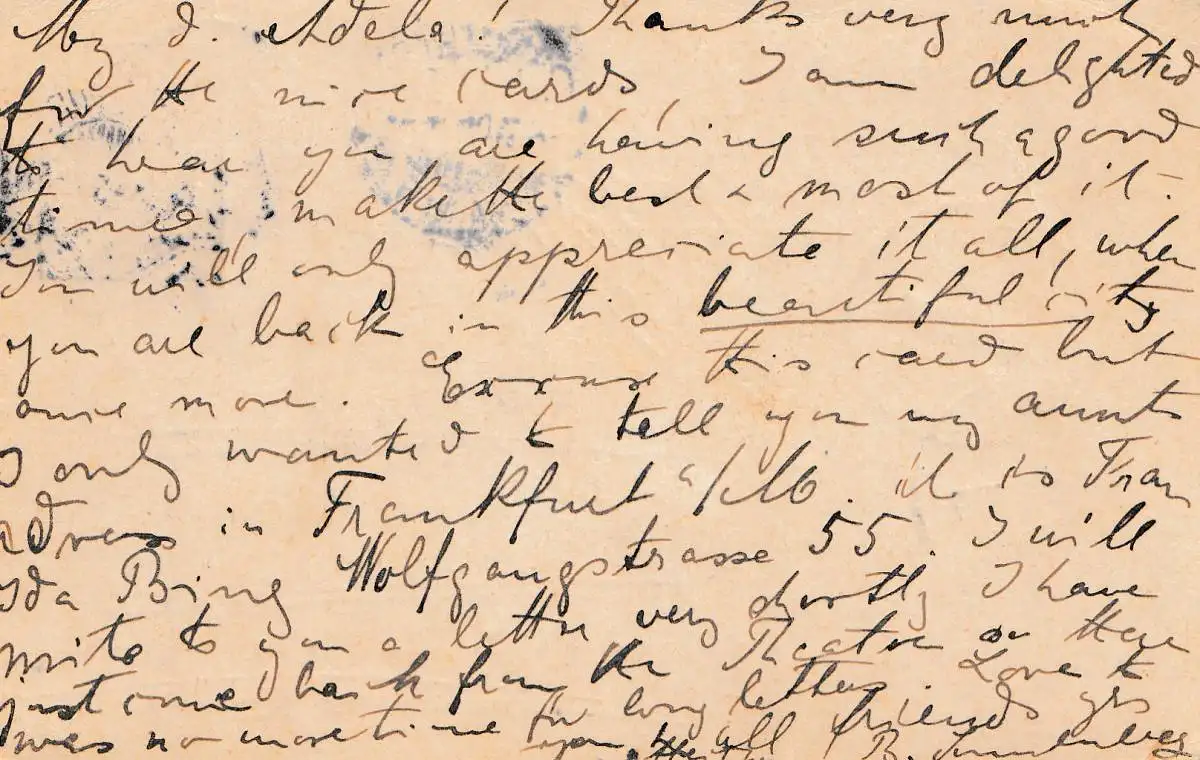 My d. Adela! Thanks very much
for the nice cards, I am delighted
to hear you are having such a good
time, make the best & most of it -
You will only appreciate it all, when
you are back in this beautiful city
once more. Excuse this card but
I only wanted to tell you my aunts
adress in Frankfurt a/M. it is Frau
Ida Bing Wolfgangstrasse 55. I will
write to you a letter very shortly I have
just come back from the Theatre so there
was no more time for long letters. Love to
you & all friends yrs
B.